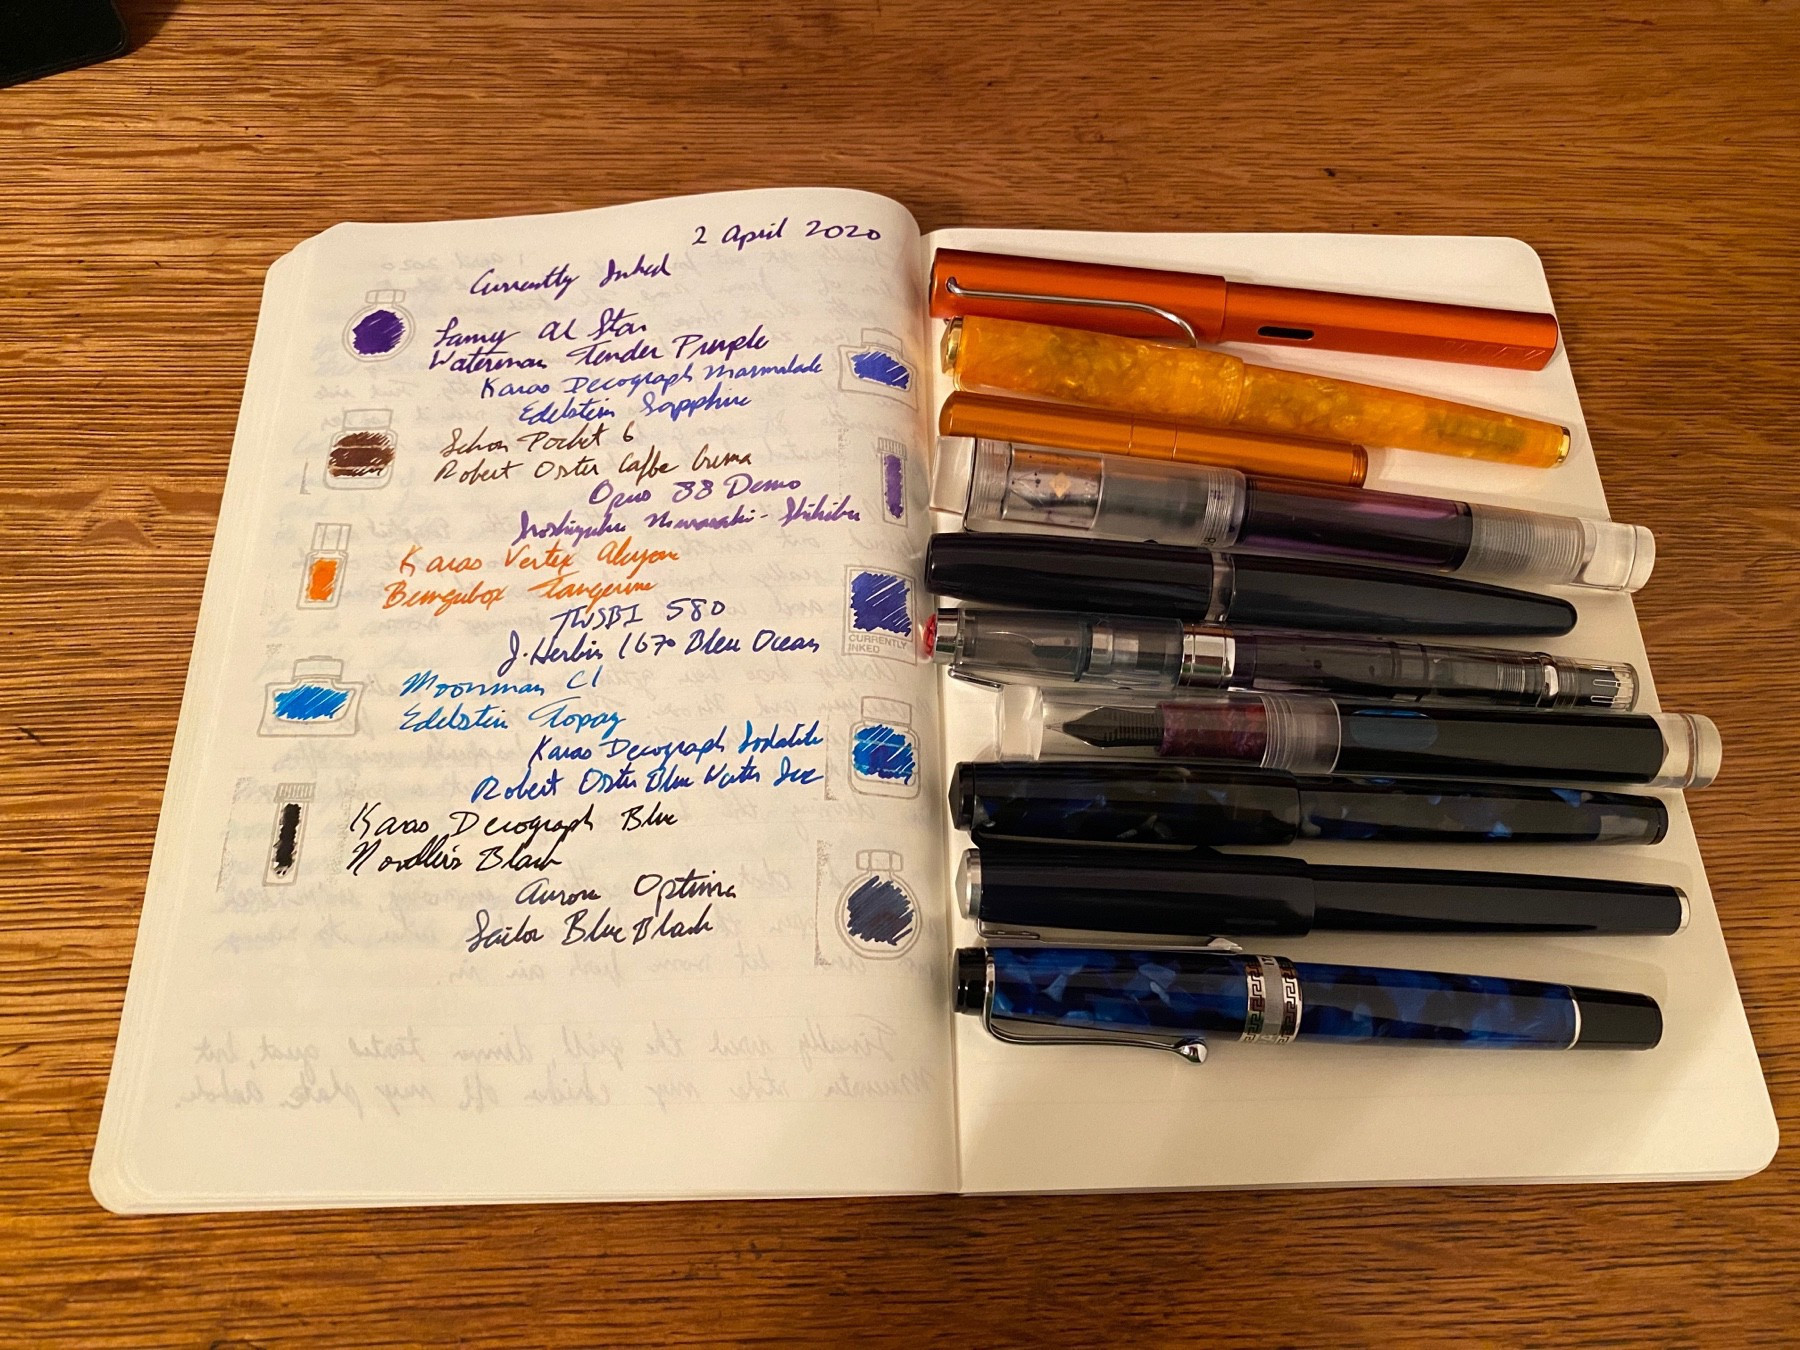 2 April 2020
Currently Inked
Lamy Al Star
Waterman Tender Purple
Karas Decograph Marmalade
Edelstein Sapphire
Schon Pocket 6
Robert Oster Caffe Crema
Opus 88 Demo
Iroshizuku Murasaki-Shikibu
Karas Vertex Alcyone
Bungubox Tangerine
TWSBI 580
J. Herbin 1670 Bleu Ocean
CURRENTLY
INKED
Moonman C1
Edelstein Topaz
Karas Decograph Sodalite
Robert Oster Blue Water Ice
Karas Decograph Blue
Noodlers Black
Aurora Optima
Sailor Blue Black